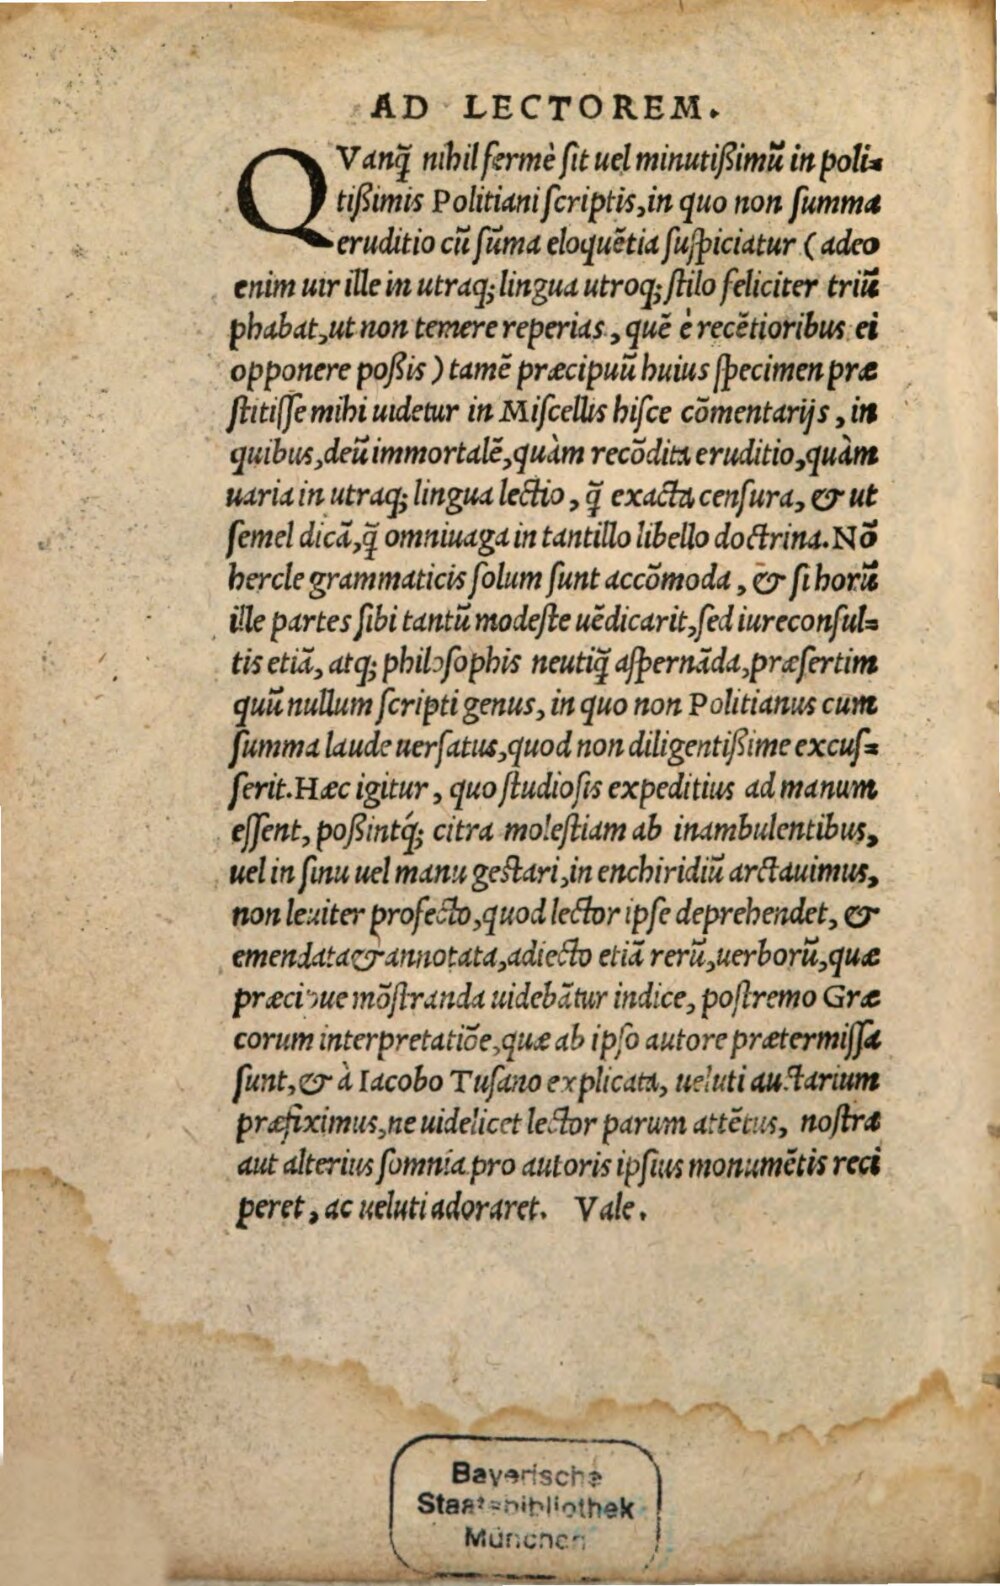 AD LECTOREM.
QVanq̃ nihil fermè sit uel minutißimũ in poli=
tißimis Politiani scriptis, in quo non summa
eruditio cũ sũma eloquẽtia suspiciatur (adeo
enim uir ille in utraq; lingua utroq; stilo feliciter triũ
phabat, ut non temere reperias, quẽ è recẽtioribus ei
opponere poßis) tamẽ præcipuũ huius specimen præ
stitisse mihi uidetur in Miscellis hisce cõmentarijs, in
quibus, deũ immortalẽ, quàm recõdita eruditio, quàm
uaria in utraq; lingua lectio, q̃ exacta censura, & ut
semel dicã, q̃ omniuaga in tantillo libello doctrina. Nõ
hercle grammaticis solum sunt accõmoda, & si horũ
ille partes sibi tantũ modeste uẽdicarit, sed iureconsul=
tis etiã, atq; philosophis neutiq̃ aspernãda, præsertim
quũ nullum scripti genus, in quo non Politianus cum
summa laude uersatus, quod non diligentißime excus=
serit. Hæc igitur, quo studiosis expeditius ad manum
essent, poßintq́; citra molestiam ab inambulentibus,
uel in sinu uel manu gestari, in enchiridiũ arctauimus,
non leuiter profecto, quod lector ipse deprehendet, &
emendata & annotata, adiecto etiã rerũ, uerborũ, quæ
præcipue mõstranda uidebãtur indice, postremo Græ
corum interpretatiõe, quæ ab ipso autore prætermissa
sunt, & à Iacobo Tusano explicata, ueluti auctarium
præfiximus, ne uidelicet lector parum attẽtus, nostra
aut alterius somnia pro autoris ipsius monumẽtis reci
peret, ac ueluti adoraret. Vale.
Bayerische
Staatsbibliothek
München